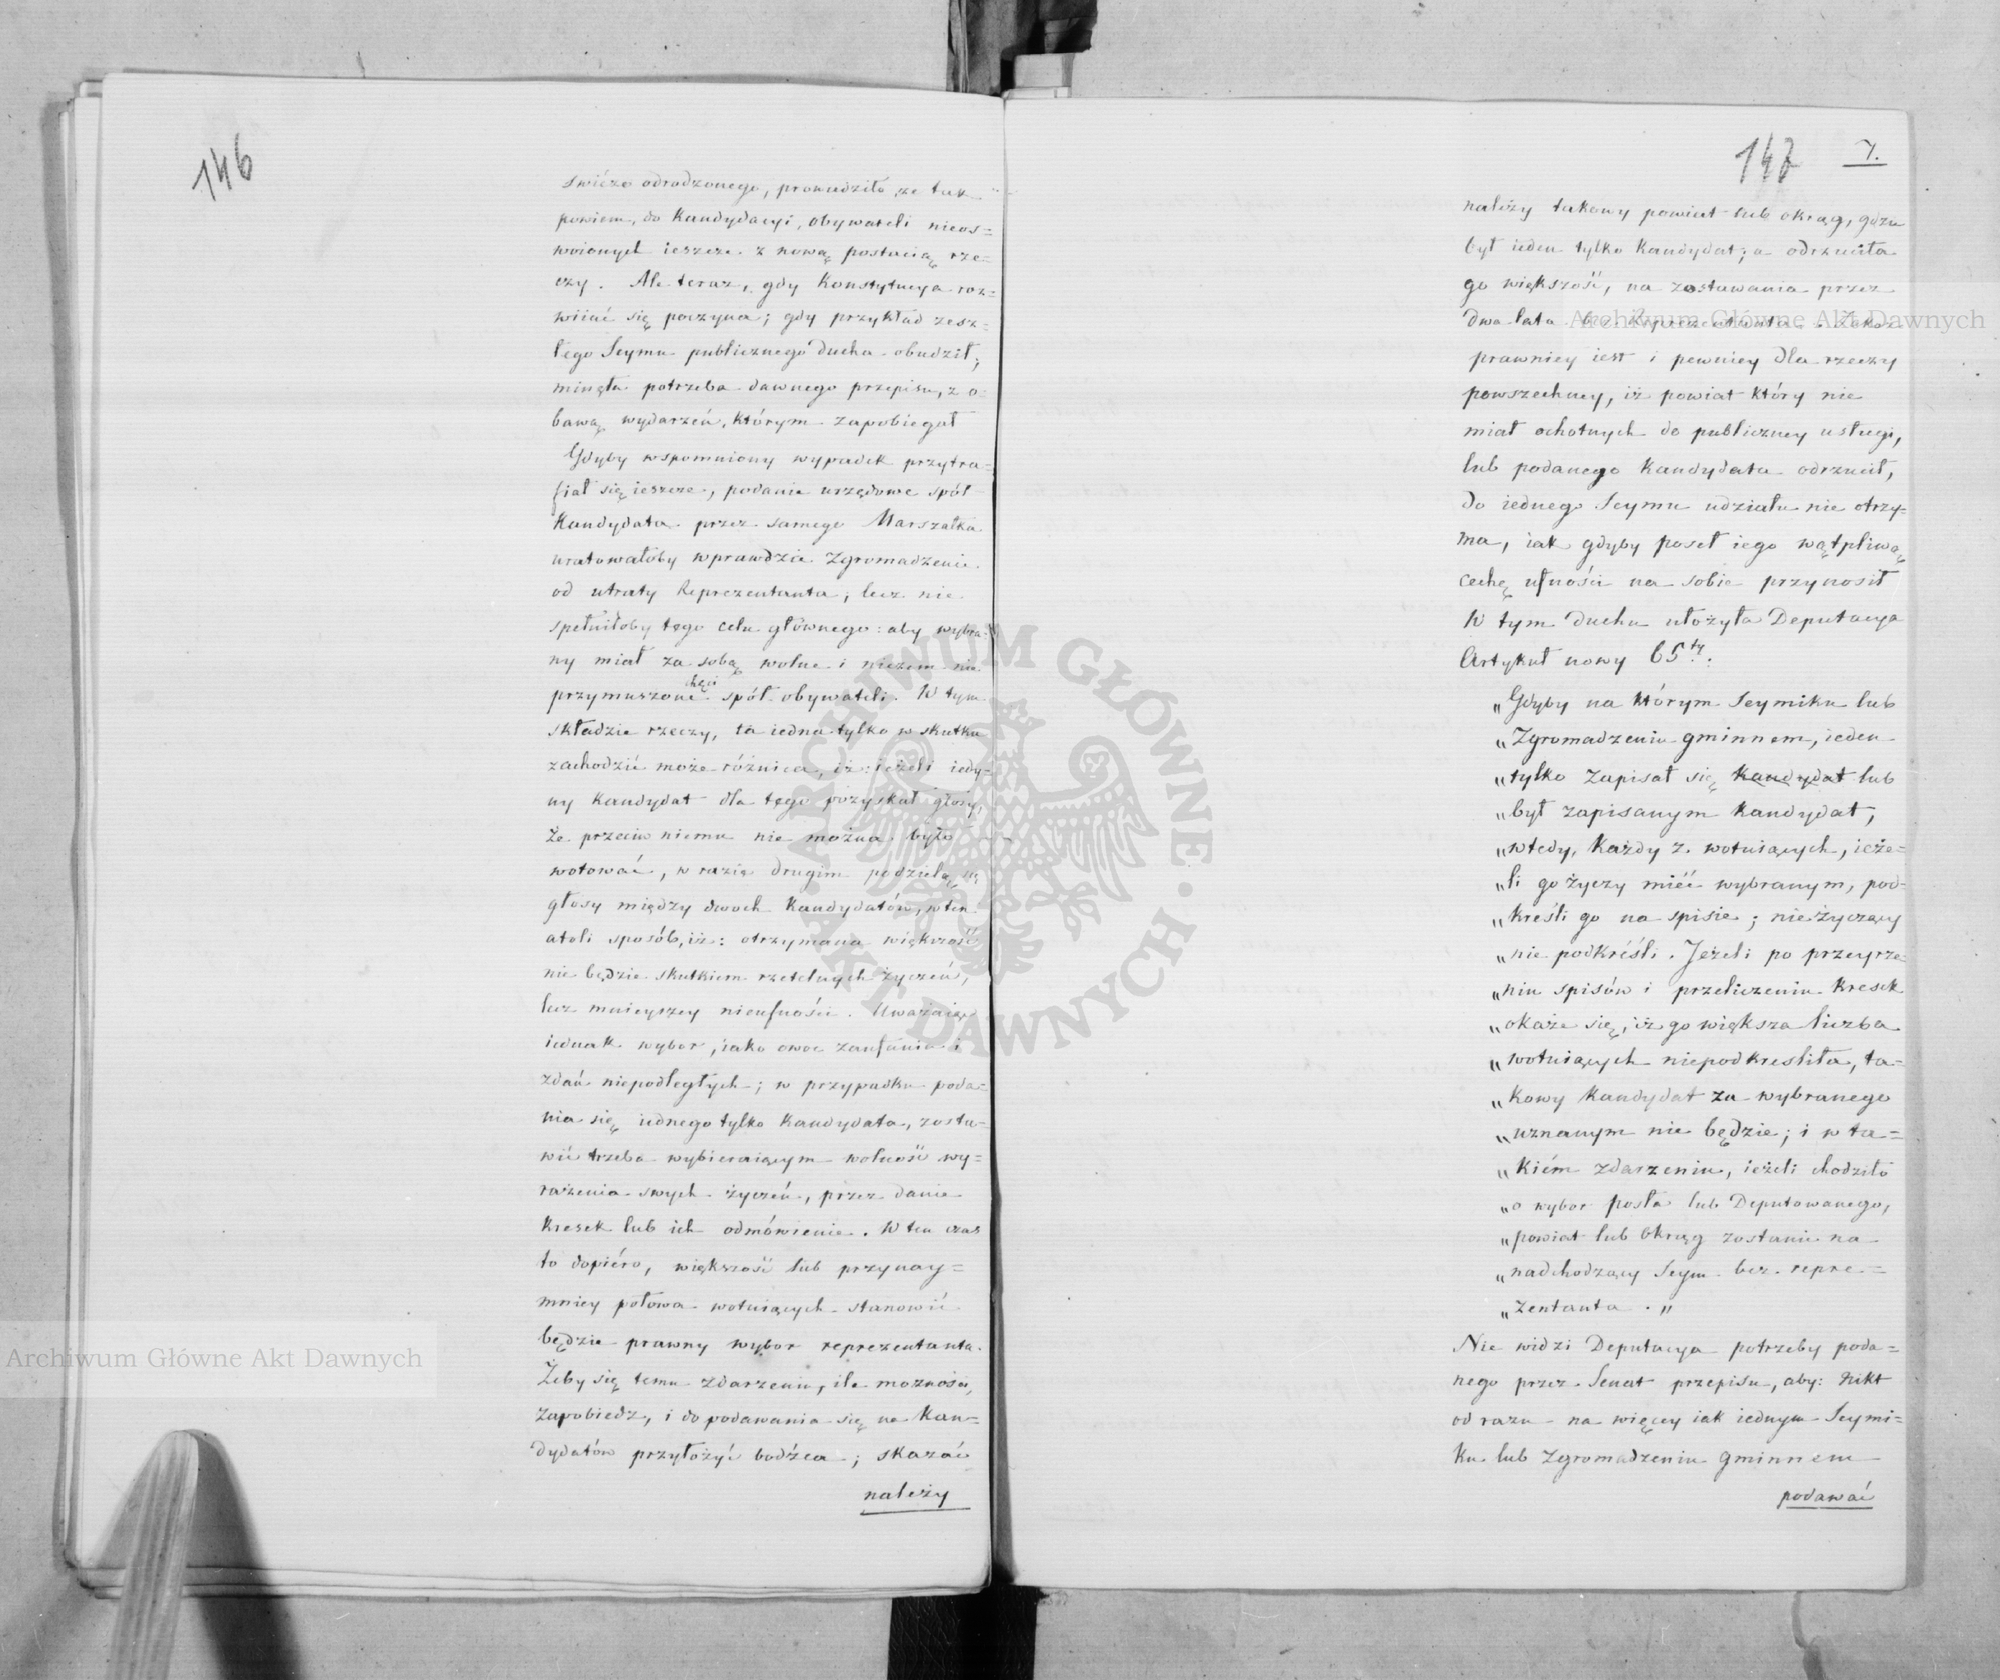 146
świéżo odrodzonego, prowadziło, że tak
powiem, do Kandydacyi, obywateli nieos=
woionych ieszcze z nową postacią rze=
czy. Ale teraz, gdy Konstytucya roz=
wiiać się poczyna; gdy przykład zesz=
łego Seymu publicznego Ducha obudził;
minęła potrzeba dawnego przepisu, z o=
bawą wydarzeń, którym zapobiegał
Gdyby wspomniony wypadek przytra=
fiał się ieszcze, podanie urzędowe spół-
Kandydata przez samego Marszałka
uratowałoby wprawdzie Zgromadzenie
od utraty Reprezentanta; lecz nie
spełniłoby tego celu głównego: aby wybra=
ny miał za sobą wolne i niczem nie
przymuszone chęci spół-obywateli. W tym
składzie rzeczy, ta iedna tylko w skutku
zachodzić może różnica, iż: ieżeli iedy=
ny Kandydat dla tego pozyskał głosy,
że przeciw niemu nie można było
wotować, w razie drugim podzielą się
głosy między dwoch Kandydatów, w ten
atoli sposób, iż: otrzymana większość
nie będzie skutkiem rzetelnych życzeń,
lecz mnieyszey nieufności. Uważaiąc
iednak wybor, iako owoc zaufania i
zdań niepodległych; w przypadku poda=
nia się iednego tylko Kandydata, zosta=
wić trzeba wybieraiącym wolność wy=
rażenia swych życzeń, przez danie
Kresek lub ich odmówienie. W ten czas
to dopiéro, większość lub przynay=
mniey połowa wotuiących stanowić
będzie prawny wybor reprezentanta.
Żeby się temu zdarzeniu, ile możności,
zapobiedz, i do podawania się na Kan=
dydatów przyłożyć bodźca; skazać
należy
147 7.
należy takowy powiat lub okrąg, gdzie
był ieden tylko Kandydat; a odrzuciła
go większość, na zostawanie przez
Dwa lata bez Reprezentanta.
prawniey iest i pewniey dla rzeczy
powszechney, iż powiat który nie
miał ochotnych do publiczney usługi,
lub podanego Kandydata odrzucił,
do iednego Seymu udziału nie otrzy=
ma, iak gdyby poseł iego wątpliwą
cechę ufności na sobie przynosił
W tym duchu ułożyła Deputacya
Artykuł nowy 65ty:
„Gdyby na którym Seymiku lub
„Zgromadzeniu gminnem, ieden
„tylko zapisał się Kandydat lub
„był zapisanym Kandydat,
„wtedy, Każdy z wotuiących, ieże=
„li go życzy mieć wybranym, pod=
„kreśli go na spisie; nieżyczący
„nie podkréśli. Jeżeli po przeyrze=
„niu spisów i przeliczeniu Kresek
„okaże się, iż go większa liczba
„wotuiących niepodkresliła, ta=
„kowy Kandydat za wybranego
„uznanym nie będzie; i w ta=
„kiém zdarzeniu, ieżeli chodziło
„o wybor posła lub Deputowanego,
„powiat lub Okrąg zostanie na
„nadchodzący Seym bez repre=
„zentanta.„
Nie widzi Deputacya potrzeby poda=
nego przez Senat przepisu, aby: nikt
od razu na więcey iak iednym Seymi=
ku lub Zgromadzeniu gminnem
podawać
Archiwum Główne Akt Dawnych
Archiwum Główne Akt Dawnych
ARCHIWUM GŁÓWNE AKT DAWNYCH